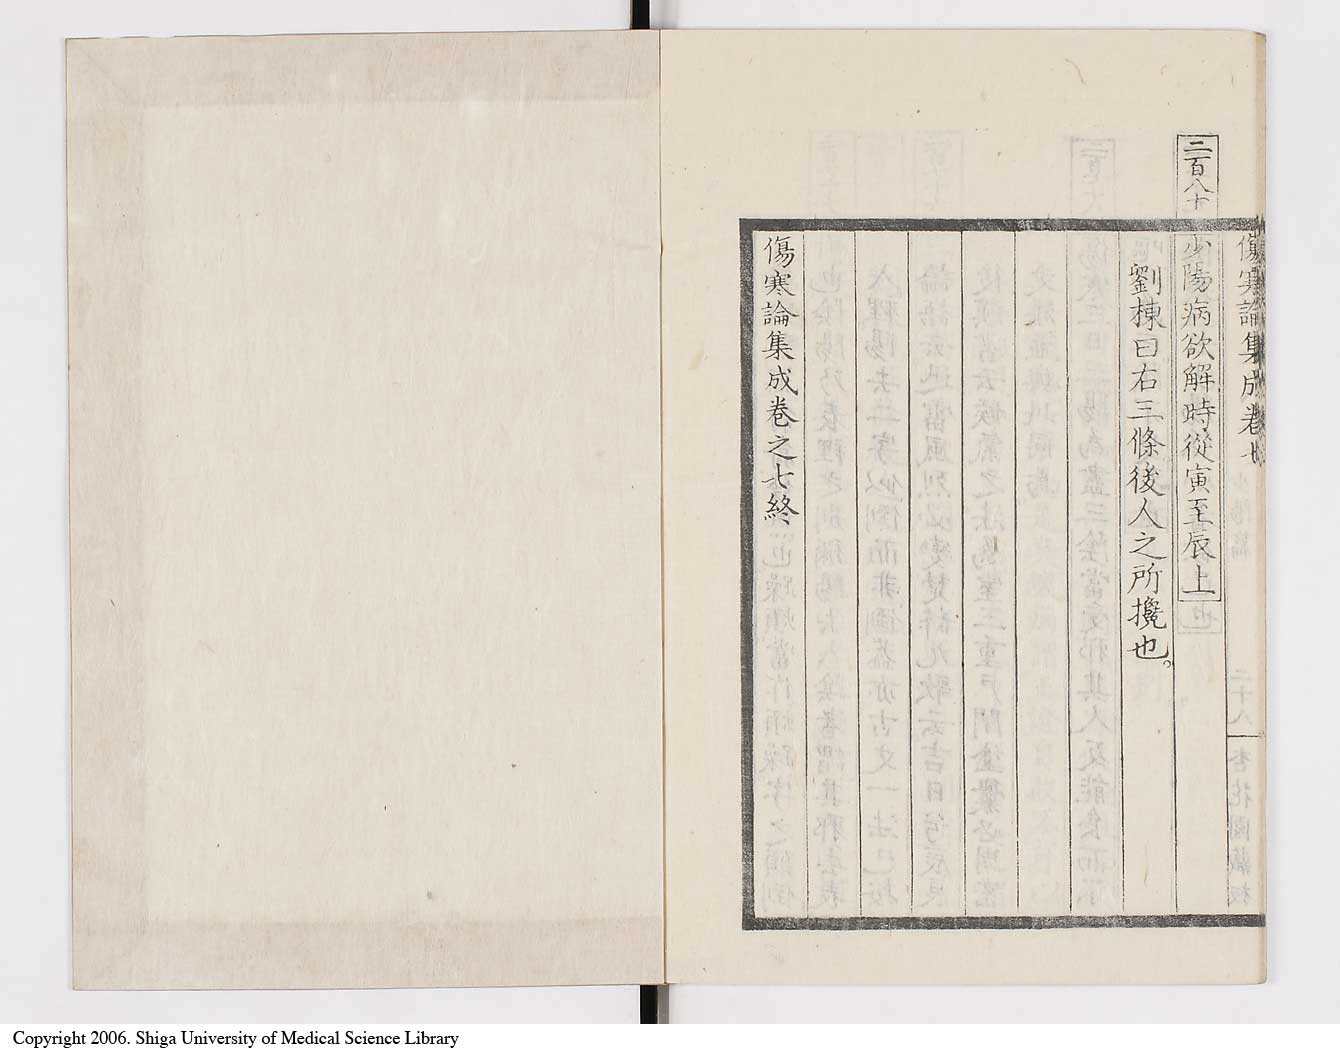 傷寒論集成卷七
二百八十
少陽病欲解時從寅至辰上
劉棟曰右三條後人之所攙也。
傷寒論集成卷之七終
Copyright 2006. Shiga University of Medical Science Library